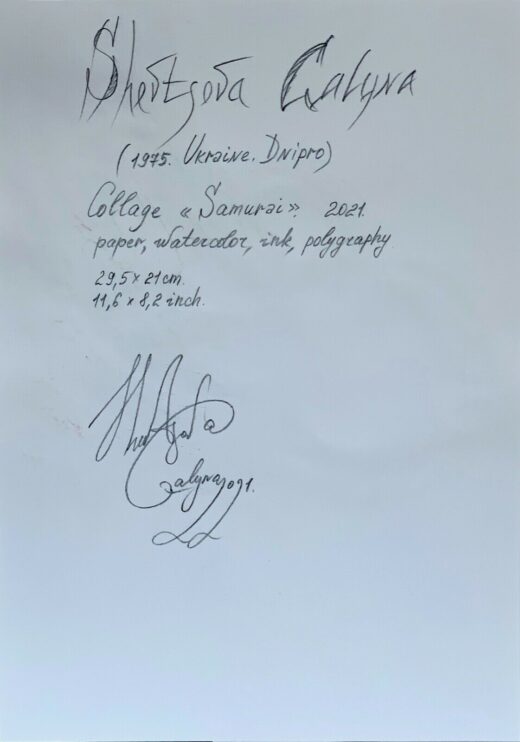 Shevtsova Galyna
(1975. Ukraine. Dnipro)
Collage « Samurai». 2021.
paper, watercolor, ink, polygraphy
29,5 x 21 cm.
11,6 x 8,2 inch.
Galyna